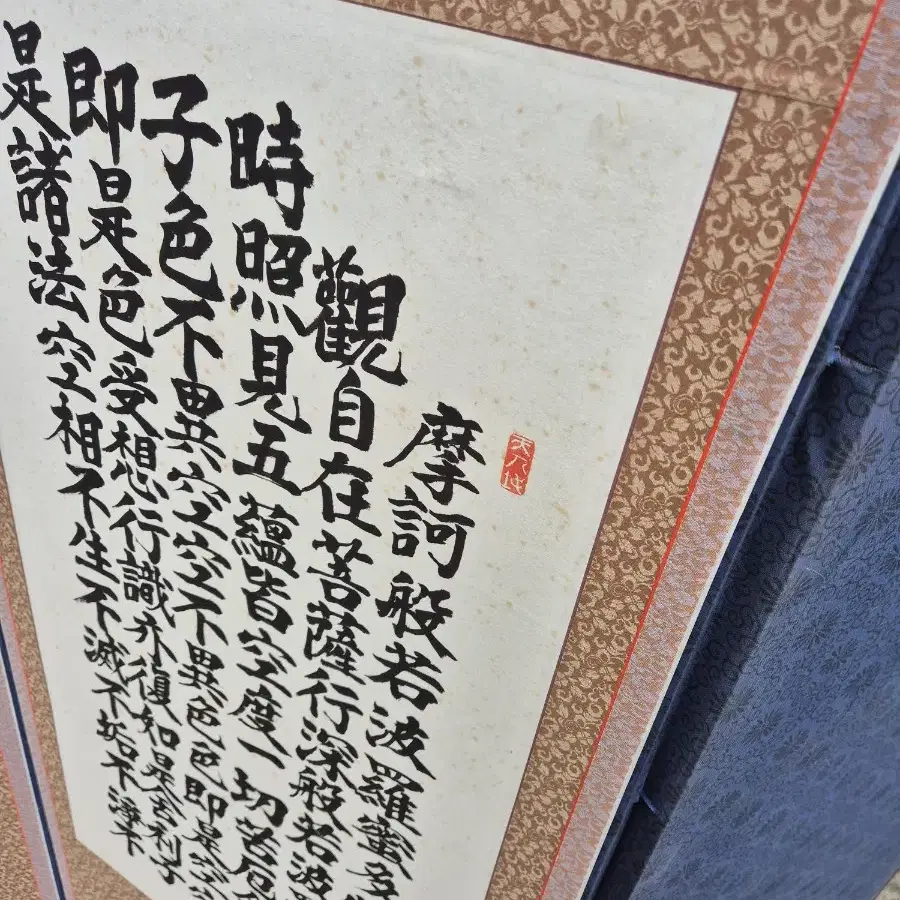 摩訶般若波羅蜜多
觀自在菩薩行深般若波
時照見五蘊皆空度一切苦厄
子色不異空空不異色色即是空
即是色受想行識亦復如是舍利子
是諸法空相不生不滅不垢不淨不